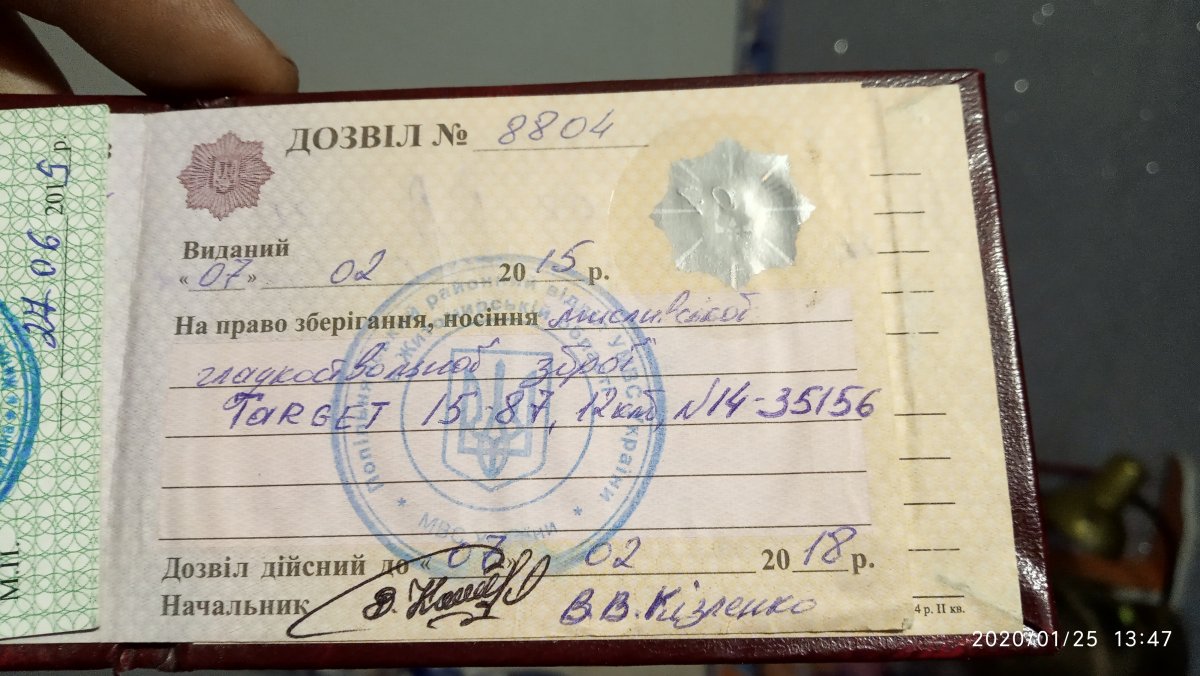 ДОЗВІЛ № 8804
Виданий
« 07 » 02 2015 р.
На право зберігання, носіння мисливської
гладкоствольної зброї
TARGET 15-87, 12к N14-35156
Дозвіл дійсний до « 07 » 02 2018 р.
Начальник В.В.
4 р. ІІ кв.
24 06 2015 р.
М.П.
районний УМВС України
МВС України
2020/01/25 13:47